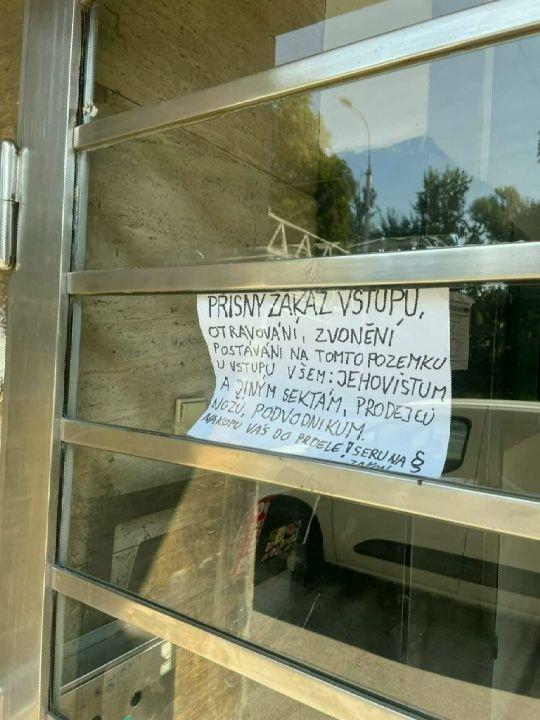 PŘÍSNÝ ZÁKAZ VSTUPU,
OTRAVOVÁNÍ, ZVONĚNÍ
POSTÁVÁNÍ NA TOMTO POZEMKU
U VSTUPU VŠEM: JEHOVISTUM
A JINÝM SEKTÁM, PRODEJCŮ
NOŽŮ, PODVODNIKUM.
NAKOPU VÁS DO PRDELE! SERU NA §
ZÁKON